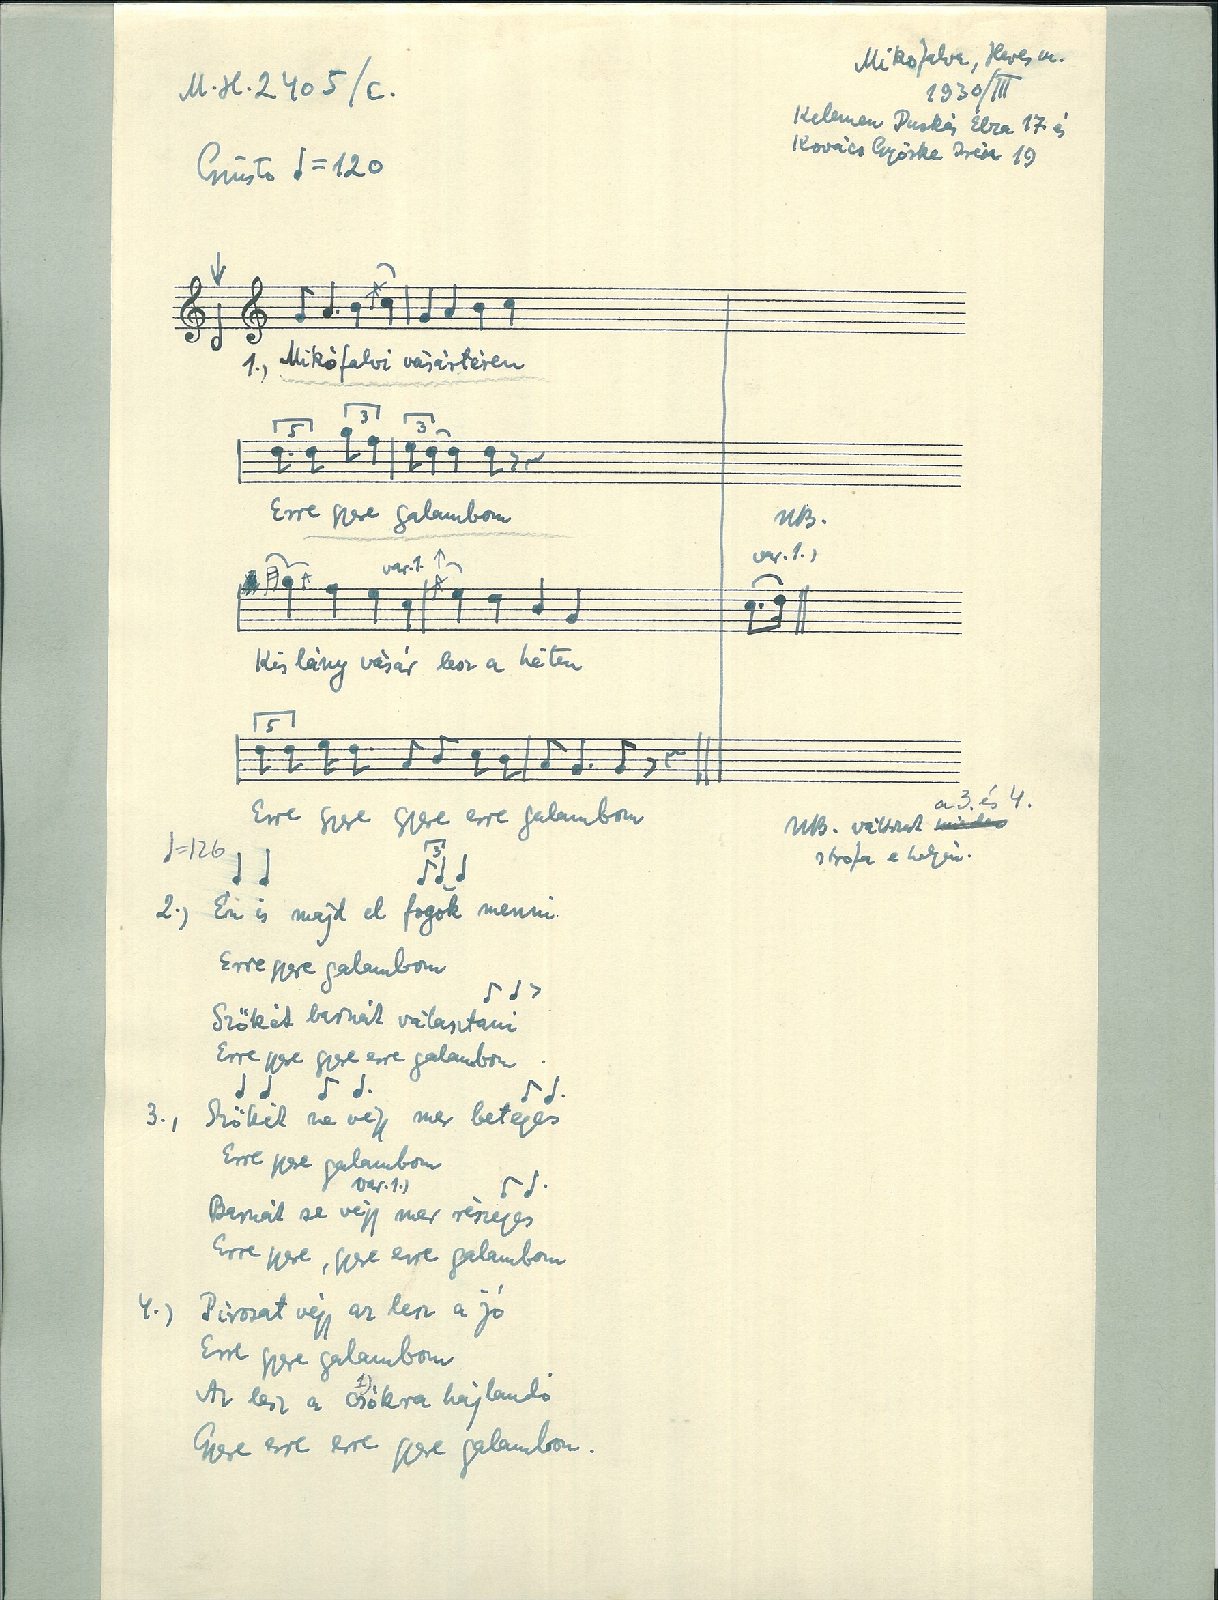 M.H. 2405/c.
Mikófalva, Heves m.
1930/III
Kelemen Puskás Élza 17. és
Kovács Györke Irén 19
Giusto ♩=120
1.) Mikófalvi vásártéren
5 3 3
Erre gyere galambom
NB.
var. 1. var. 1.)
Kis lány vásár lesz a héten
5
Erre gyere gyere erre galambom
a 3. és 4.
NB. változat
strófa e helyén.
♩=126
3
2.) Én is majd el fogok menni.
Erre gyere galambom
Szőkét barnát választani
Erre gyere gyere erre galambom.
3., Szőkét ne végy mer beteges
Erre gyere galambom
var. 1.)
Barnát se végy mer részeges
Erre gyere, gyere erre galambom
4.) Pirosat végy az lesz a jó
Erre gyere galambom
1)
Az lesz a csókra hajlandó
Gyere erre erre gyere galambom.